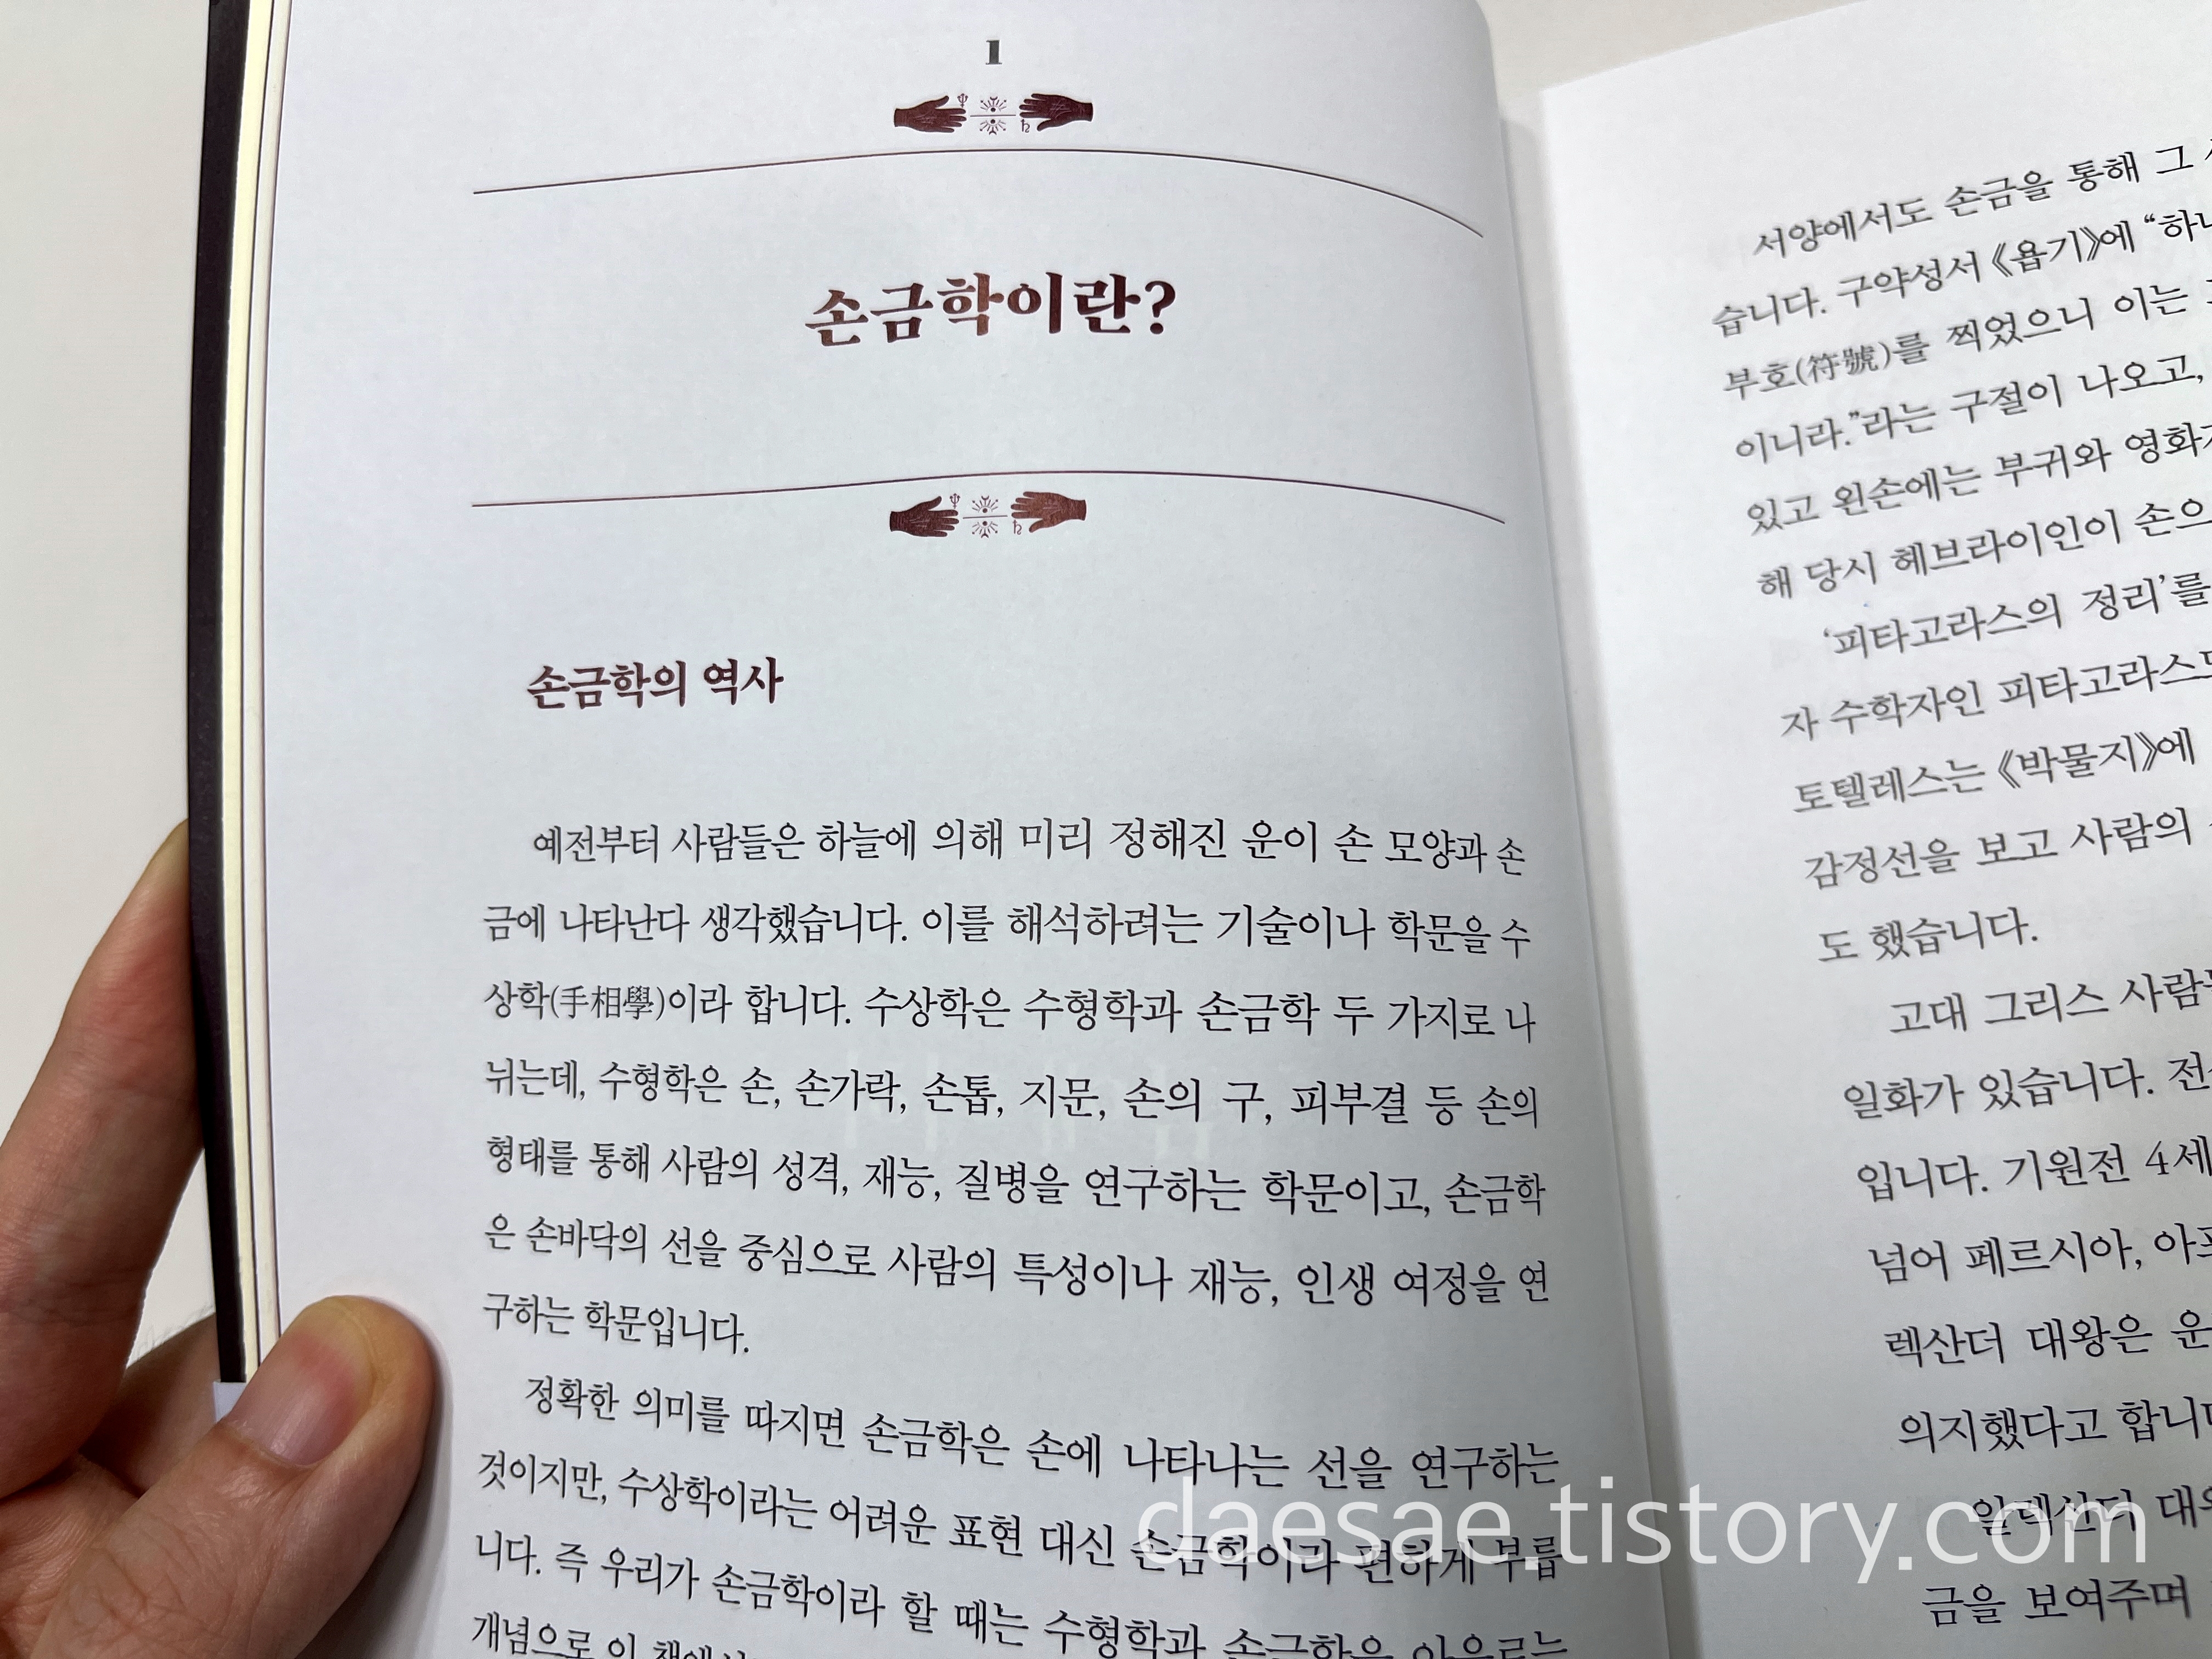 1
손금학이란?
손금학의 역사
예전부터 사람들은 하늘에 의해 미리 정해진 운이 손 모양과 손
금에 나타난다 생각했습니다. 이를 해석하려는 기술이나 학문을 수
상학(手相學)이라 합니다. 수상학은 수형학과 손금학 두 가지로 나
뉘는데, 수형학은 손, 손가락, 손톱, 지문, 손의 구, 피부결 등 손의
형태를 통해 사람의 성격, 재능, 질병을 연구하는 학문이고, 손금학
은 손바닥의 선을 중심으로 사람의 특성이나 재능, 인생 여정을 연
구하는 학문입니다.
정확한 의미를 따지면 손금학은 손에 나타나는 선을 연구하는
것이지만, 수상학이라는 어려운 표현 대신 손금학이라 편하게 부릅
니다. 즉 우리가 손금학이라 할 때는 수형학과 손금학을 아우르는
개념으로 이
서양에서도 손금을 통해 그
습니다. 구약성서 《욥기》에 “하나
부호(符號)를 찍었으니 이는
이니라.”라는 구절이 나오고,
있고 왼손에는 부귀와 영화가
해 당시 헤브라이인이 손으
‘피타고라스의 정리’를
자 수학자인 피타고라스도
토텔레스는 《박물지》에
감정선을 보고 사람의
도 했습니다.
고대 그리스 사람들
일화가 있습니다.
입니다. 기원전 4세
넘어 페르시아, 아프
렉산더 대왕은 운
의지했다고 합니다
알렉산더
금을 보여주며
daesae.tistory.com